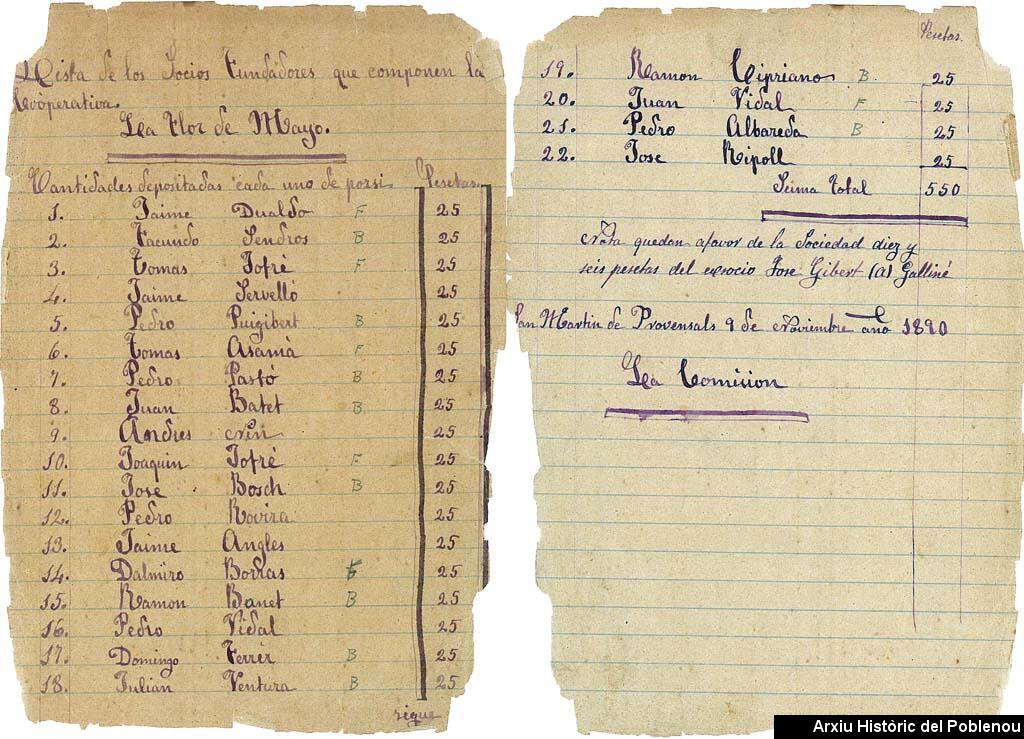 Lista de los Socios Fundadores que componen la
Cooperativa.
La Flor de Mayo.
Cantidades depositadas cada uno de porsi. Pesetas.
1. Jaime Dualdo F 25
2. Facundo Sendros B 25
3. Tomas Jofré F 25
4. Jaime Servelló 25
5. Pedro Puigibert B 25
6. Tomas Asamà F 25
7. Pedro Pastó B 25
8. Juan Batet B 25
9. Andres Nin 25
10. Joaquin Jofré F 25
11. Jose Bosch B 25
12. Pedro Rovira 25
13. Jaime Angles 25
14. Dalmiro Borras 25
15. Ramon Banet B 25
16. Pedro Vidal 25
17. Domingo Ferrér B 25
18. Julian Ventura B 25
sigue
Pesetas.
19. Ramon Cipriano B 25
20. Juan Vidal F 25
21. Pedro Albareda B 25
22. Jose Ripoll 25
Suma total 550
Nota quedan afavor de la Sociedad diez y
seis pesetas del exsocio Jose Gibert (a) Galliné
San Martin de Provensals 9 de Noviembre año 1890
La Comision
Arxiu Històric del Poblenou